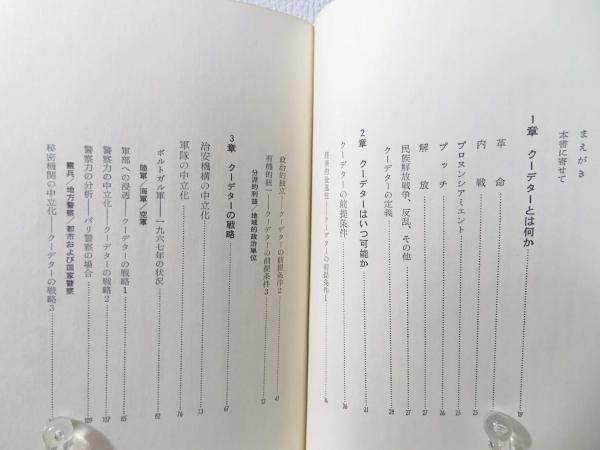 まえがき
本書に寄せて
1章 クーデターとは何か 19
革命 23
内戦 25
プロヌンシアミエント 25
プッチ 26
解放 27
民族解放戦争、反乱、その他 27
クーデターの定義 28
2章 クーデターはいつ可能か 21
クーデターの前提条件 36
経済的後進性——クーデターの前提条件1
政治的独立——クーデターの前提条件2 41
有機的統一——クーデターの前提条件3 52
分派的利益/地域的政治単位
3章 クーデターの戦略 67
治安機構の中立化 73
軍隊の中立化 76
ポルトガル軍——一九六七年の状況 82
陸軍/海軍/空軍
軍部への浸透——クーデターの戦略1 85
警察力の中立化——クーデターの戦略2 107
警察力の分析——パリ警察の場合 109
憲兵/地方警察/都市および国家警察
秘密機関の中立化——クーデターの戦略3